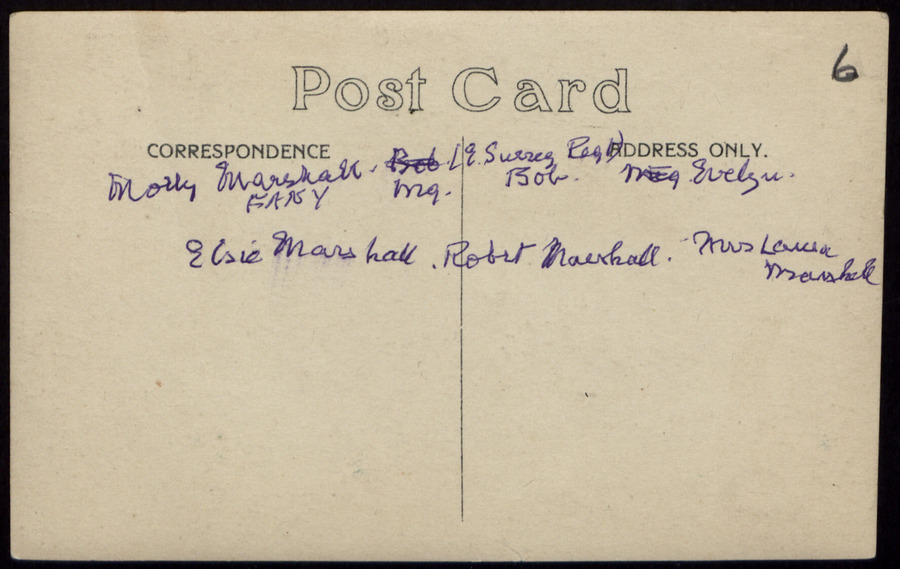 Post Card
6
CORRESPONDENCE
ADDRESS ONLY.
Molly Marshall. Bob (E. Surrey Regt)
FANY Mg. Bob. Meg Evelyn.
Elsie Marshall. Robert Marshall. Mrs Laura
Marshall